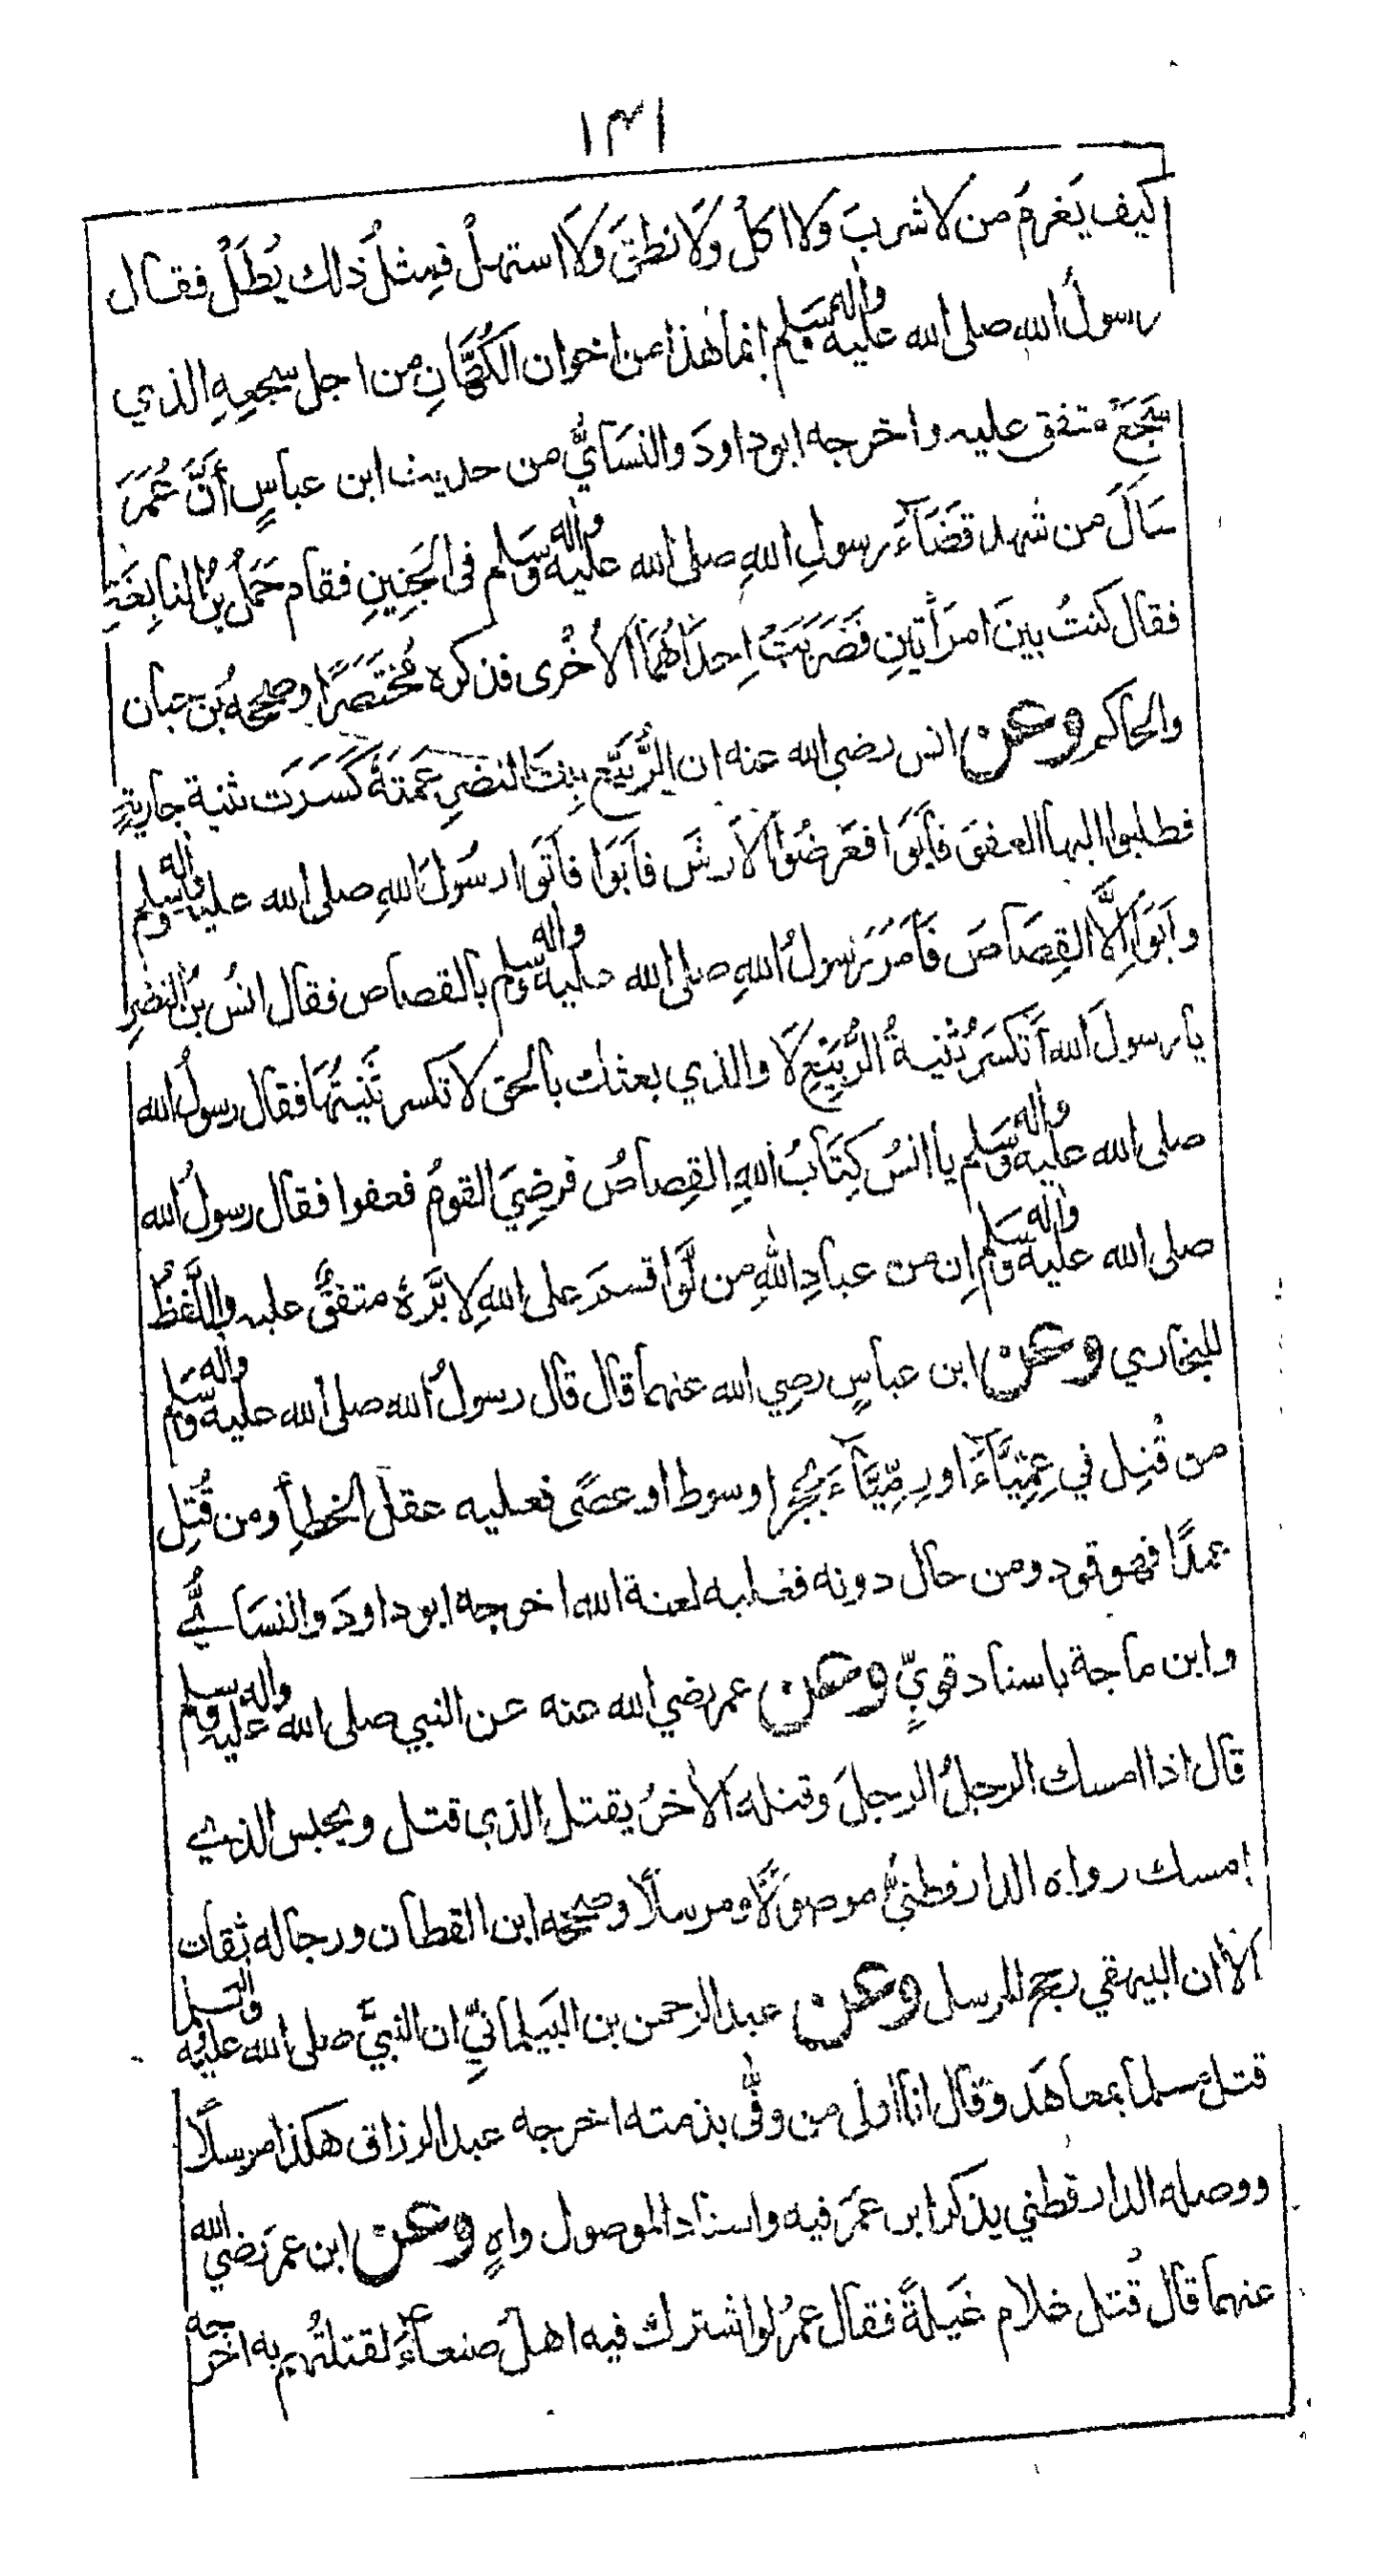 ١٣١
كيف يَغرمُ من لا شربَ ولا اكلْ ولا نطقَ ولا استهلْ فمِثلُ ذلك يُطَلْ فقال
رسولُ الله صلى الله عليه واله وسلم انما هذا من اخوان الكُهَّانِ من اجل سجعِهِ الذي
سَجَعَ متفق عليه واخرجه ابوداودَ والنسَائيُّ من حديث ابن عباسٍ أنَّ عُمَرَ
سَاَلَ من شهد قضَآءَ رسولِ اللهِ صلى الله عليه واله وسلم فى الجَنِينِ فقام حَمَلُ بنُ النابِغَةِ
فقال كنتُ بينَ امرَأتينِ فَضَرَبَتْ اِحدَاهُمَا الأُخْرى فذكره مُختَصَرًا وصححهُ بن حبان
والحاكم وعن انس رضي الله عنه ان الرُّبَيِّع بِنتَ النضرِ عَمَتَهُ كَسَرَت ثنية جاريةٍ
فطلبوا اليها العفوَ فاَبَوَا فعَرَضُوا الاَرشَ فاَبَوَا فاَتَوَا رسُولَ اللهِ صلى الله عليه واله وسلم
واَبَوَا اِلَّا القِصَاصَ فَاَمَرَ رَسولُ اللهِ صلى الله عليه واله وسلم بالقصاص فقال انسُ بنُ النضرِ
يا رسولَ الله اَتكسَرُ ثنيةُ الرُّبَيِّعِ لَا والذي بعثك بالحق لا تكسر ثَنيتُهَا فقال رسولُ الله
صلى الله عليه واله وسلم يا انسُ كِتَابُ اللهِ القِصاصُ فرضِيَ القومُ فعفوا فقال رسولُ الله
صلى الله عليه واله وسلم اِن من عبادِ اللهِ من لَّو اقسمَ على اللهِ لابَّرهُ متفقٌ عليه واللَّفظُ
للبخاري وعن ابن عباسٍ رضِي الله عنهما قال قال رسولُ الله صلى الله عليه واله وسلم
من قُتِل في عِمِّيَّآءَ اور مِّيَّآءَ بحجرٍ او سوط او عصًى فعليه عقل الخطأِ ومن قُتِل
عمدًا فهو قود ومن حال دونه فعليه لعنة الله اخرجه ابوداودَ والنسَائيُّ
وابن ماجة باسناد قويٍّ وعن عمر رضي الله عنه عن النبي صلى الله عليه واله وسلم
قال اذا امسك الرجلُ الرجلَ وقتله الاخرُ يقتل الذي قتل ويحبس الذي
امسك رواه الدارقطنيُّ موصوَلًا ومرسلًا وصححه ابن القطان ورجاله ثقات
الا ان البيهقي رجح المرسل وعن عبد الرحمن بن البَيلمانيِّ ان النبيَّ صلى الله عليه واله وسلم
قتل مسلما بمعاهَد وقال انا اولى من وفّى بذمته اخرجه عبد الرزاق هكذا مرسلًا
ووصله الدارقطني يذكر ابن عمَرَ فيه واسناد الموصول واهٍ وعن ابن عمَرَ رضي الله
عنهما قال قُتل غلام غَيلةً فقال عمرُ لو اشترك فيه اهلُ صنعآءَ لقتلتُهم به اخرجه